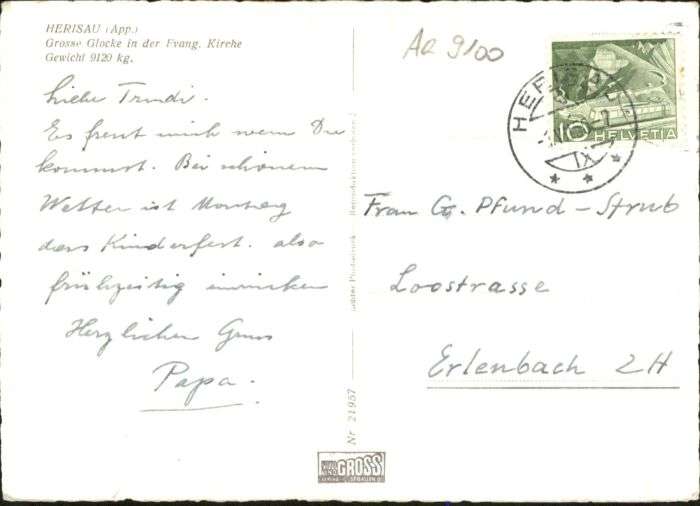 HERISAU (App.)
Grosse Glocke in der Evang. Kirche
Gewicht 9120 kg.
AR 9100
Liebe Trudi.
Es freut mich wenn Du
kommst. Bei schönem
Wetter ist Montag
das Kinderfest. also
frühzeitig einrücken
Herzlichen Gruss
Papa.
Reproduktion verboten
Nr 21957
GROSS
10
HELVETIA
HERISAU
XI
Frau G. Pfund-Strub
Loostrasse
Erlenbach ZH